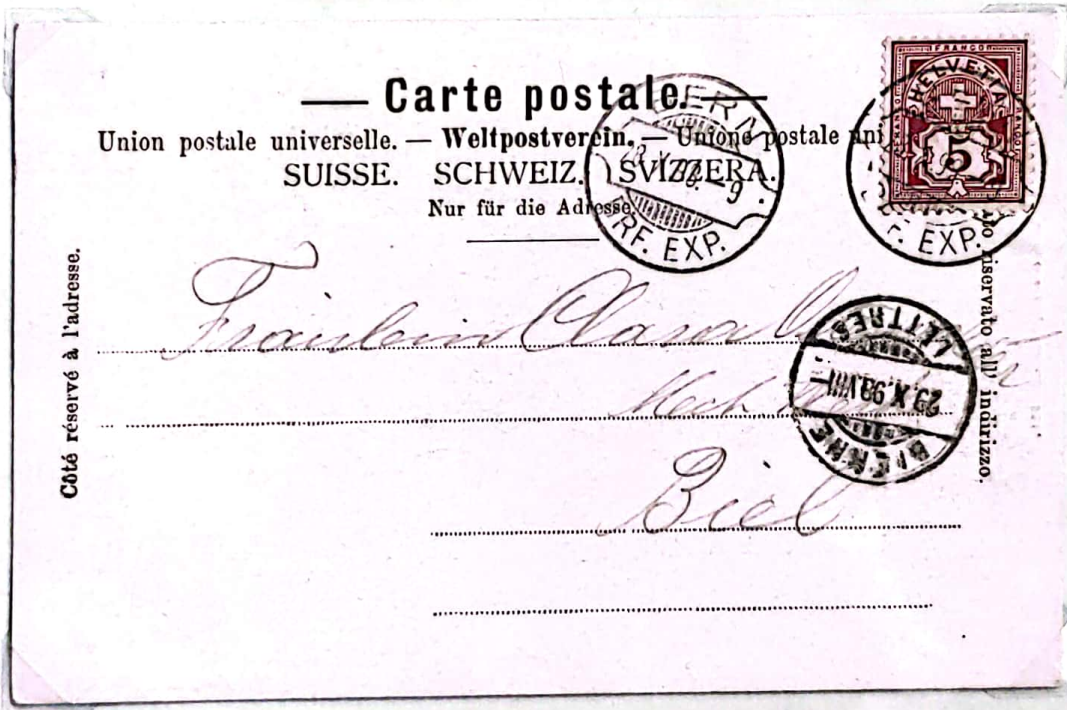 Carte postale.
Union postale universelle. — Weltpostverein. — Unione postale uni
SUISSE. SCHWEIZ. SVIZZERA.
Nur für die Adresse.
Côté réservé à l'adresse.
riservato all' indirizzo.
FRANCO
HELVETIA
5
BERN
BRF. EXP.
F. EXP.
LETTRES
29.X.98.VIII
BIENNE
Fräulein Clara
Biel